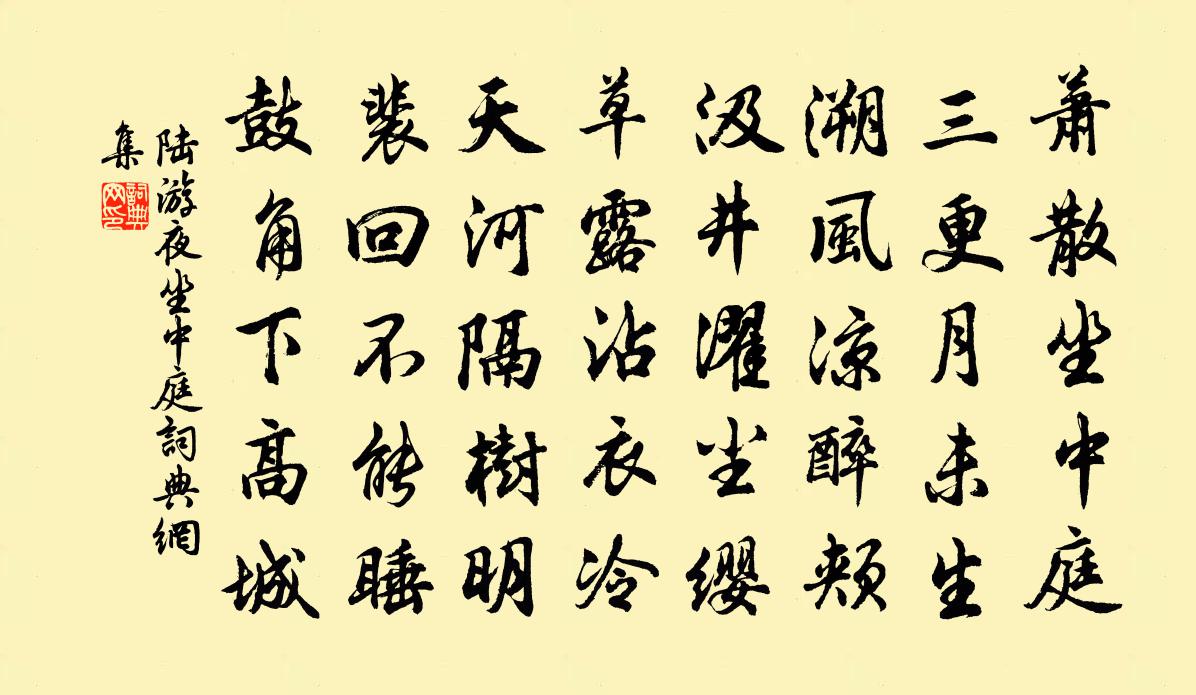 萧散坐中庭
三更月未生
溯風凉醉颊
汲井濯尘缨
草露沾衣冷
天河隔樹明
裴回不能睡
鼓角下高城
陆游夜坐中庭詞典網
集
詞典
网印